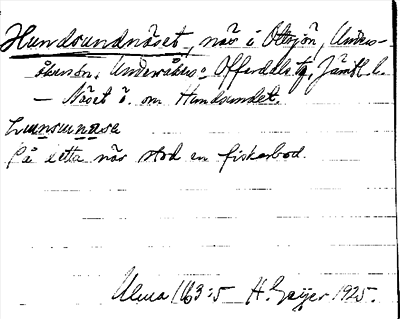 Hundsundnäset, näs i Ottsjön, Unders-
åkers sn. Undersåkers o Offerdals tg, Jämtl. l.
— Näset ö. om Hundsundet.
På detta näs stod en fiskarbod.
Ulma 163:5 H. Geijer 1925.